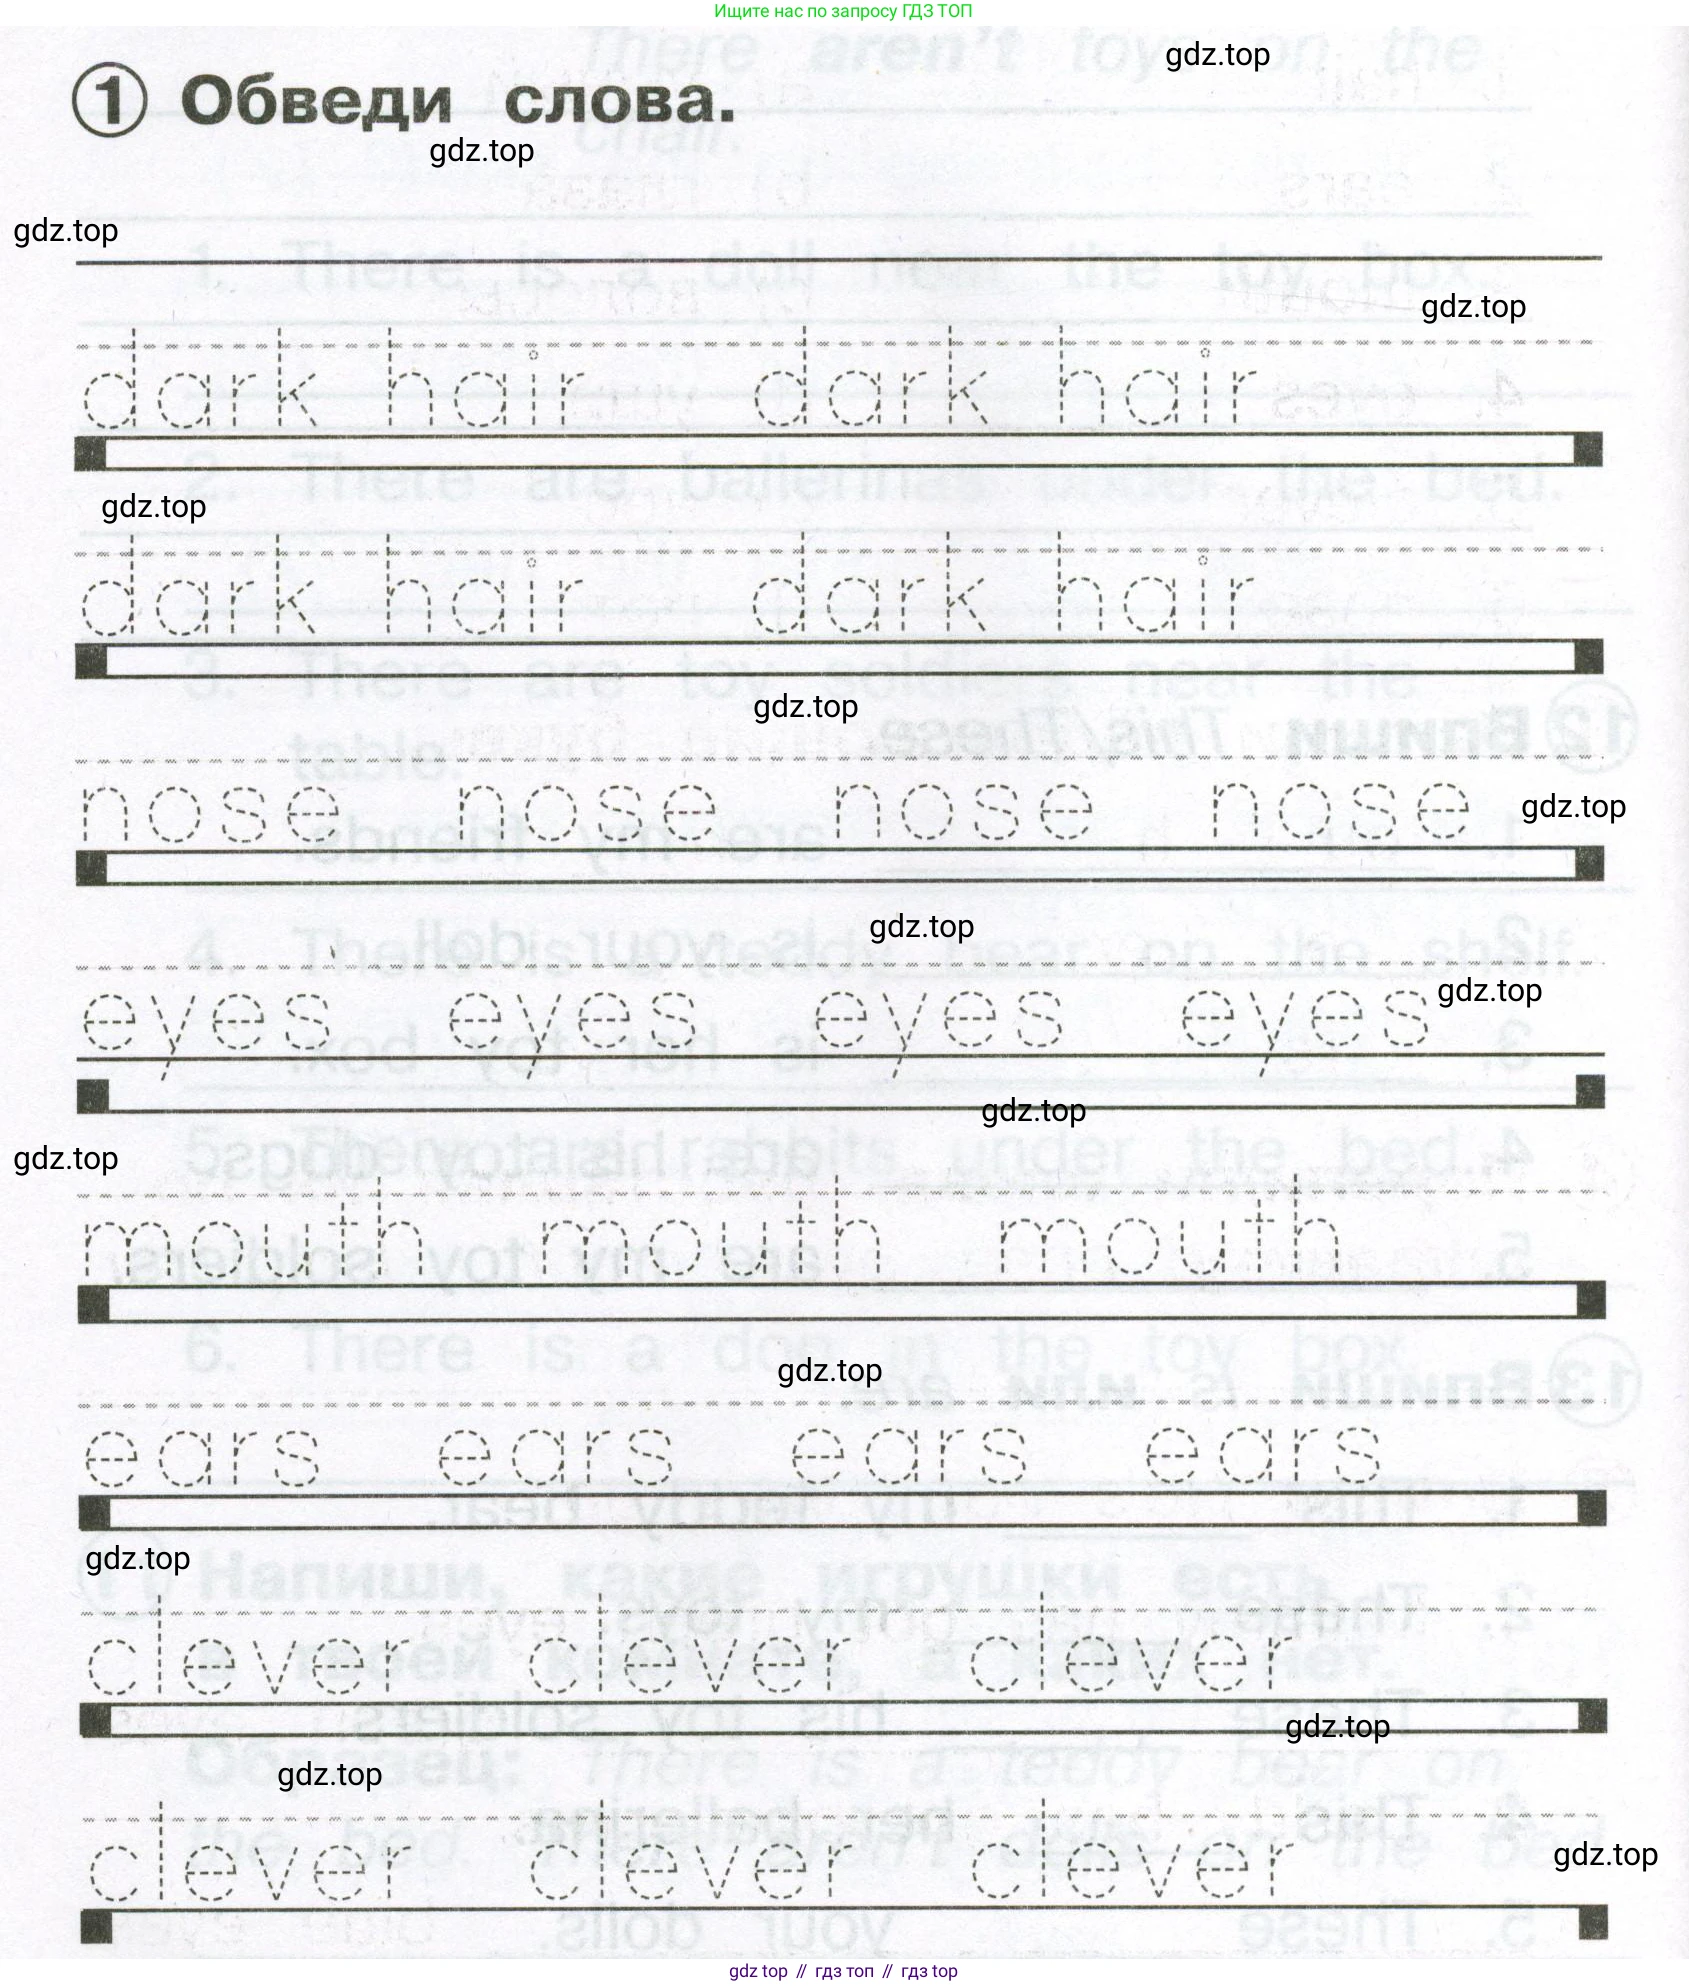 Ищите нас по запросу ГДЗ ТОП
gdz.top
1 Обведи слова.
gdz.top
gdz.top
gdz.top
dark hair dark hair
gdz.top
dark hair dark hair
gdz.top
nose nose nose nose
gdz.top
gdz.top
eyes eyes eyes eyes
gdz.top
gdz.top
gdz.top
mouth mouth mouth
gdz.top
ears ears ears ears
gdz.top
clever clever clever
gdz.top
gdz.top
clever clever clever
gdz.top
gdz top // гдз топ // гдз top